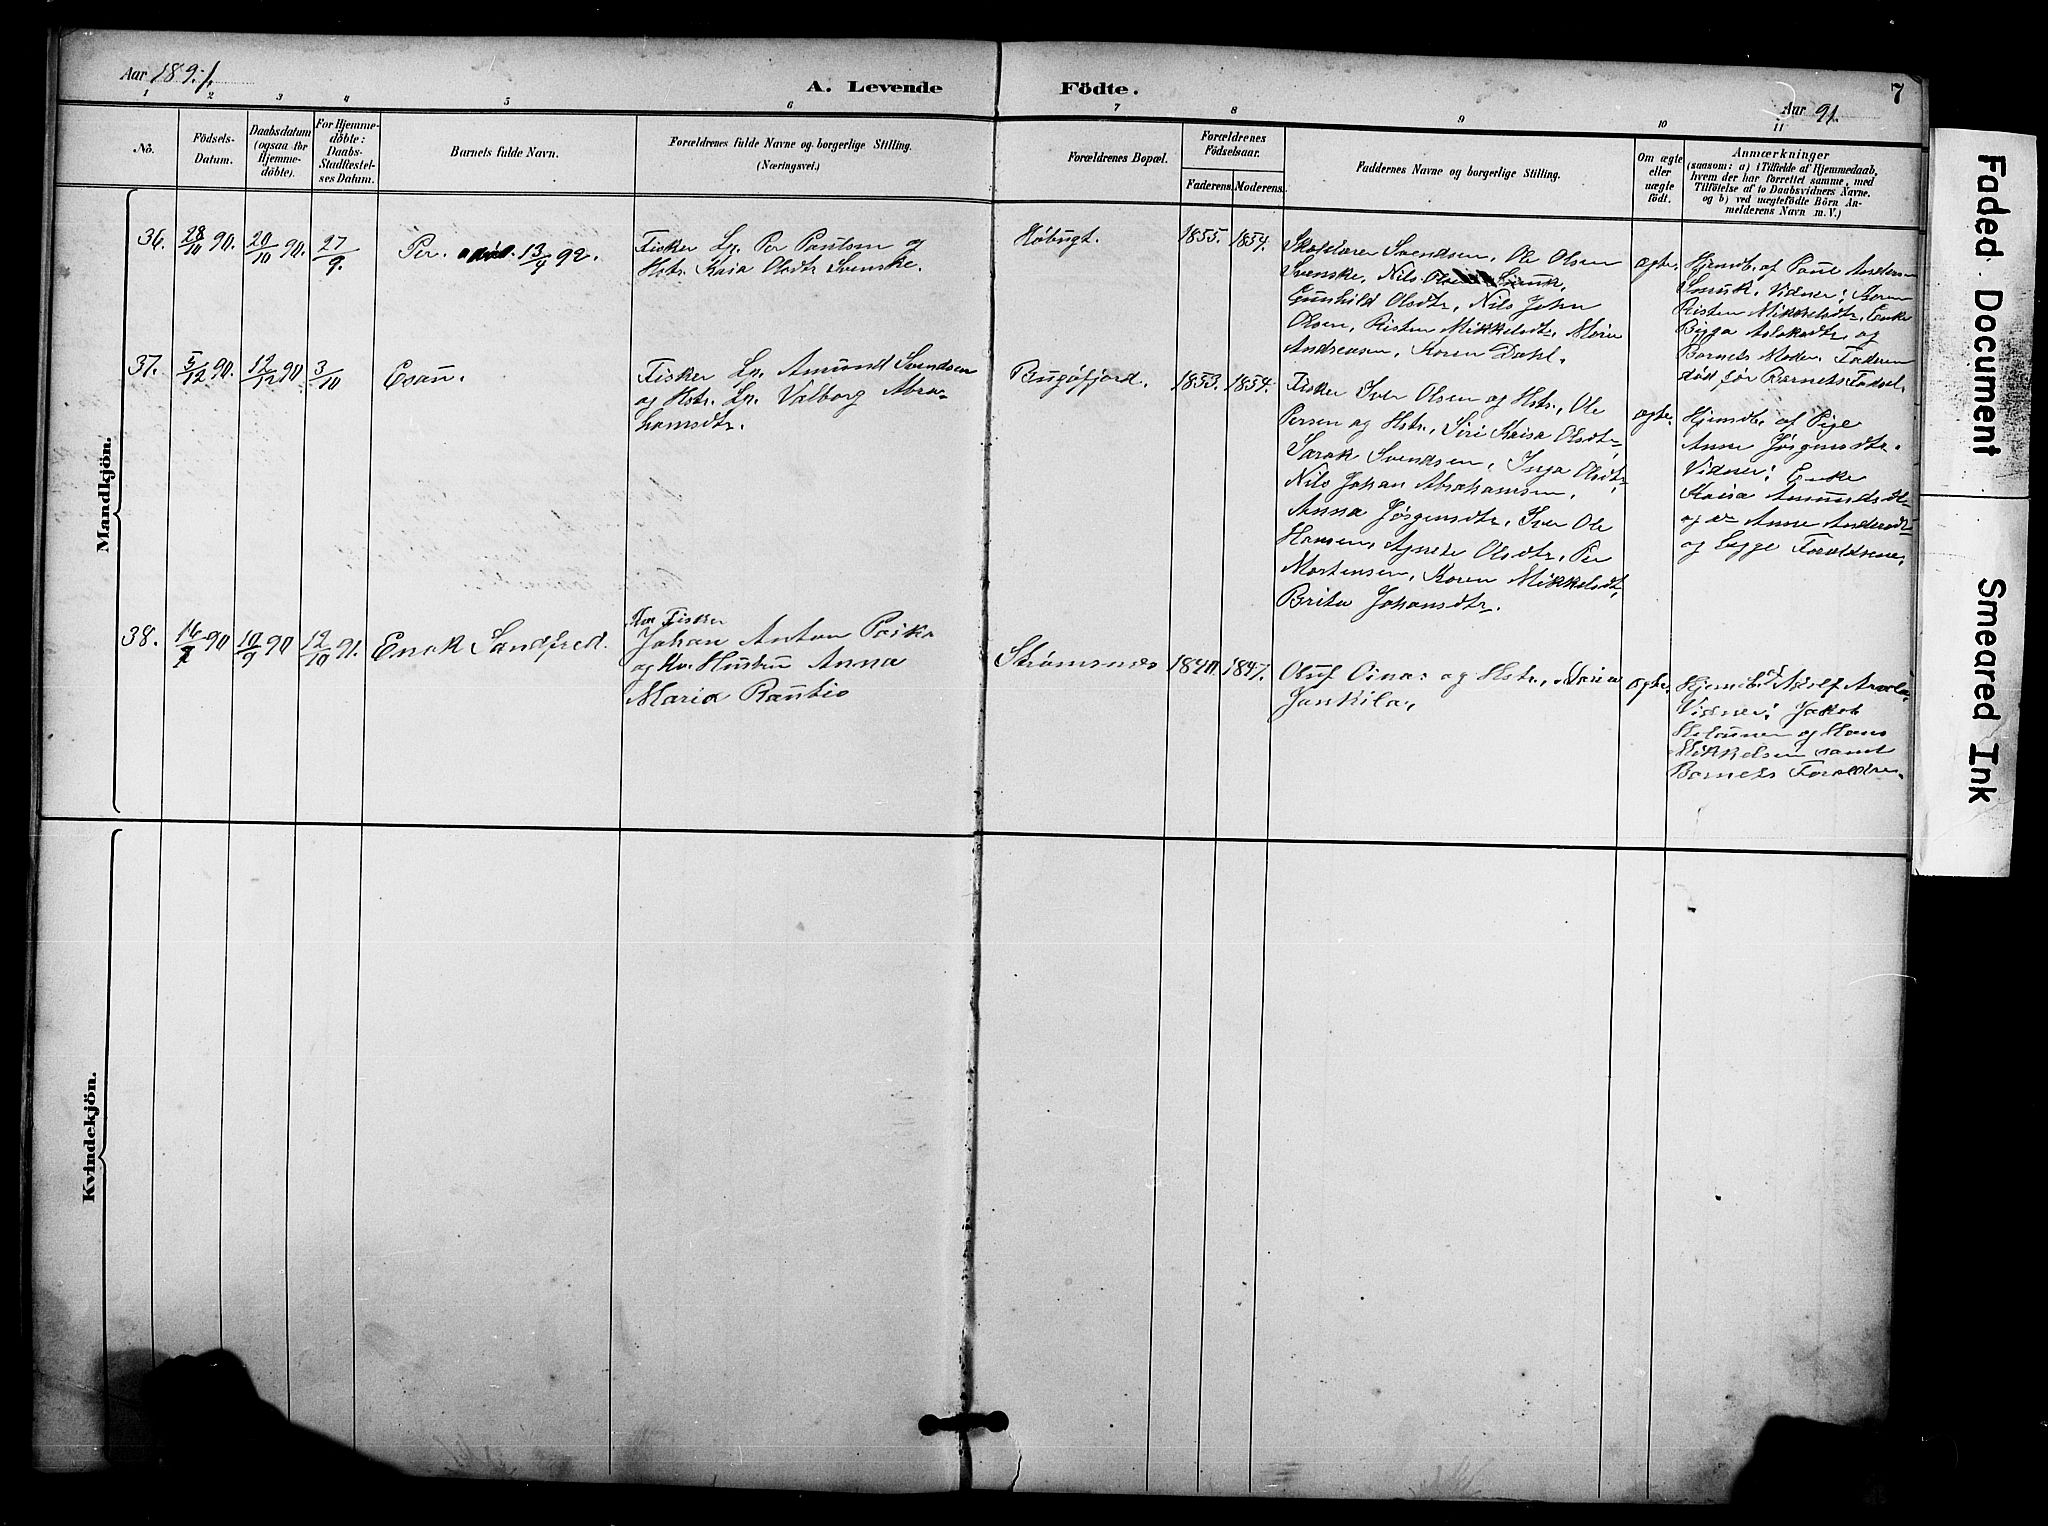 Aar 1891.
A. Levende Födte.
7
Aar 91.
1 2 3 4 5 6 7 8 9 10 11
No.
Födsels-
Datum.
Daabsdatum
(ogsaa for
Hjemme-
döbte).
For Hjemme-
döbte:
Daabs-
Stadfæstel-
ses Datum.
Barnets fulde Navn.
Forældrenes fulde Navne og borgerlige Stilling.
(Næringsvei.)
Forældrenes Bopæl.
Forældrenes
Födselsaar.
Faderens.
Moderens.
Faddernes Navne og borgerlige Stilling.
Om ægte
eller
uægte
födt.
Anmærkninger
(saasom: a) i Tilfælde af Hjemmedaab,
hvem der har forrettet samme, med
Tilföielse af to Daabsvidners Navne.
og b) ved uægtefödte Börn An-
melderens Navn m. V.)
Mandkjön.
36.
28/10 90.
20/10 90.
27/9.
Per. död. 13/9 92.
Fisker Lp. Per Paulsen og
Hstr. Kaia Olsdtr Svenske.
Høbugt.
1855.
1854.
Svendsen, Ole Olsen
Svenske, Nils
Gunhild Olsdtr, Nils John
Olsen, Risten Mikkelsdtr, Marie
Andreasen, Karen Dahl.
ægte.
Hjemdb. af Paul Andersen
Vidner: Karen
Risten Mikkelsdtr, Enke
Bigga Aslaksdtr og
Barnets Moder. Faderen
død før Barnets Fødsel.
37.
5/12 90.
12/12 90.
3/10
Esau.
Fisker Lp. Amund Svendsen
og Hstr. Lp. Valborg Abra-
hamsdtr.
Bugøfjord.
1853.
1854.
Fisker Iver Olsen og Hstr., Ole
Persen og Hstr. Siri Kaisa Olsdtr,
Sarak Svendsen, Inga Olsdtr,
Nils Johan Abrahamsen,
Anna Jørgensdtr, Iver Ole
Hansen, Agnete Olsdtr, Per
Mortensen, Karen Mikkelsdtr,
Brita Johansdtr.
ægte.
Hjemdb. af Pige
Anne Jørgensdtr.
Vidner: Enke
Kaisa Amundsdtr
og Anne Andersdtr
og begge Forældrene.
38.
16/7 90
10/9 90
12/10 91.
Enok Sandfred.
Kv. Fisker
Johan Anton Paiko
og Kv. Hustru Anna
Maria Rautio
Strømsnes
1840.
1847.
Oluf Oina og Hstr., Maria
Junkila,
ægte.
Hjemdb. af Adolf
Vidner: Jakob
og Hans
Mikkelsen samt
Barnets Forældre.
Kvindekjön.
Faded Document
Smeared Ink